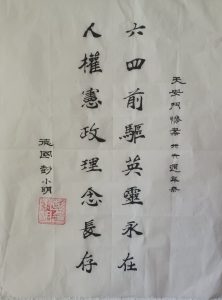 天安門慘案卅六週年祭
六四前驅英靈永在
人權憲政理念長存
德國 彭小明